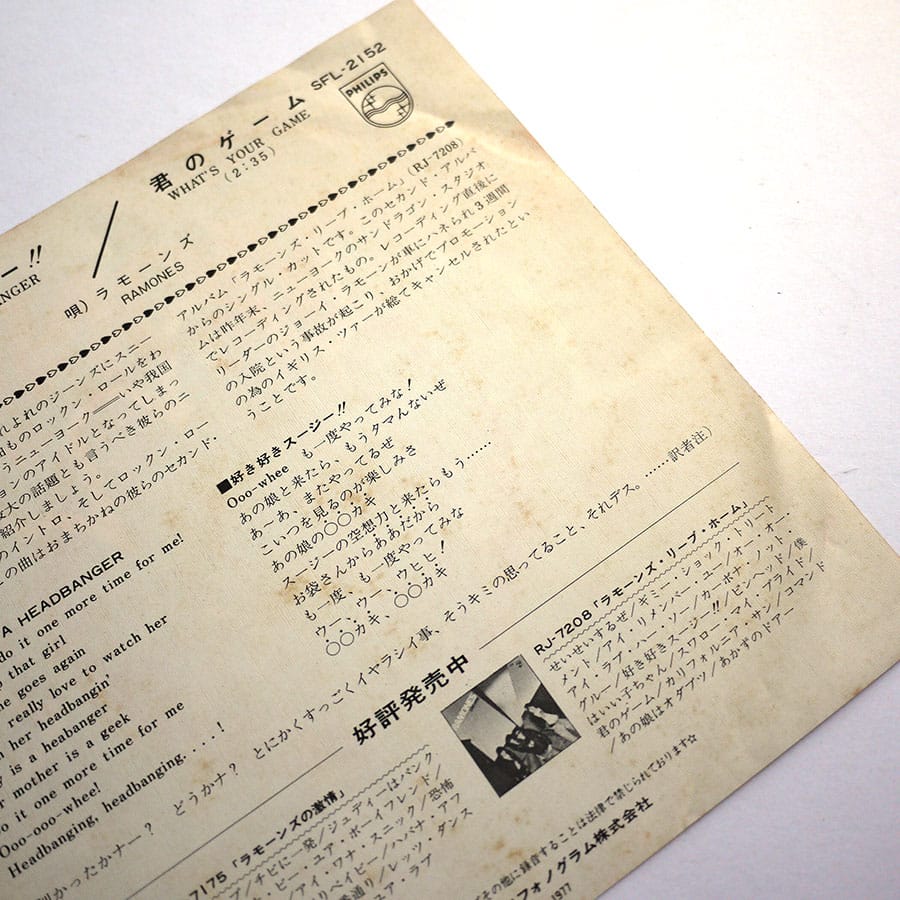 君のゲーム SFL-2152
WHAT'S YOUR GAME
(2:35)
PHILIPS
ー!!
ANGER
唄)ラモーンズ
RAMONES
れよれのジーンズにスニー
ものロックン・ロールをわ
うニューヨーク——いや我国
ションのアイドルとなってしまっ
大の話題とも言うべき彼らのニ
紹介しましょう。
のイントロ、そしてロックン・ロー
の曲はおまちかねの彼らのセカンド・
アルバム「ラモーンズ・リーブ・ホーム」(RJ-7208)
からのシングル・カットです。このセカンド・アルバ
ムは昨年末、ニューヨークのサンドラゴン・スタジオ
でレコーディングされたもの。レコーディング直後に
リーダーのジョーイ・ラモーンが車にハネられ3週間
の入院という事故が起こり、おかげでプロモーション
の為のイギリス・ツァーが総てキャンセルされたとい
うことです。
A HEADBANGER
do it one more time for me!
that girl
goes again
really love to watch her
her headbangin'
is a heabanger
mother is a geek
do it one more time for me
Ooo-ooo-whee!
Headbanging, headbanging....!
■好き好きスージー!!
Ooo-whee も一度やってみな!
あの娘と来たら、もうタマんないぜ
あ〜あ、またやってるぜ
こいつを見るのが楽しみさ
あの娘の○○カキ
スージーの空想力と来たらもう……
お袋さんからああだから
も一度、も一度やってみな
ウー、ウー、ウヒヒ!
○○カキ、○○カキ
かったかナー? どうかナ? とにかくすっごくイヤラシイ事、そうキミの思ってること、それデス。……訳者注)
好評発売中
7175「ラモーンズの激情」
プ/チビに一発/ジュディーはパンク
・ビー・ユア・ボーイフレンド/
/アイ・ワナ・スニック/恐怖
リベイビー/ハバナ・アフ
番通り/レッツ・ダンス
ユア・ラブ
RJ-7208「ラモーンズ・リーブ・ホーム」
せいせいするぜ/ギミー・ショック・トリート
メント/アイ・リメンバー・ユー/オー・オー・
アイ・ラブ・ハー・ソー/カーボナ・ノット・
グルー/好き好きスージー!!/ピンヘッド/僕
はいい子ちゃん/スワロー・マイ・プライド/
君のゲーム/カリフォルニア・サン/コマンド
/あの娘はオダブツ/あかずのドアー
その他に録音することは法律で禁じられております☆
フォノグラム株式会社
1977